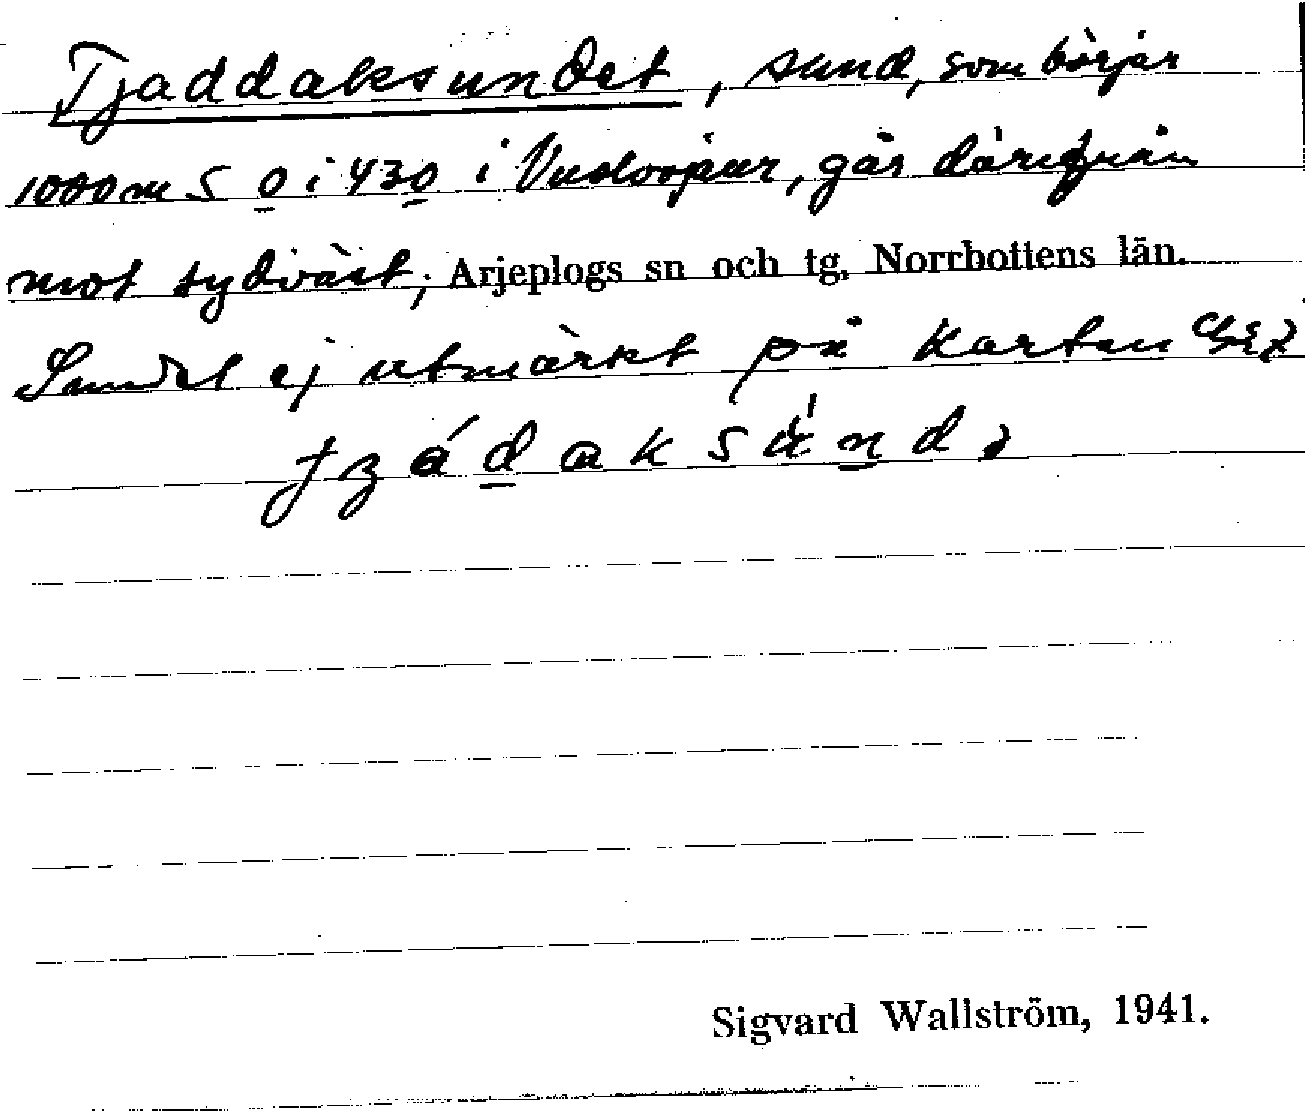 Tjaddaksundet, sund, som börjar
1000 m S 0 i 430 i Vuolvojaur, går därifrån
mot sydväst; Arjeplogs sn och tg. Norrbottens län.
Sundet ej utmärkt på kartan
Sigvard Wallström, 1941.